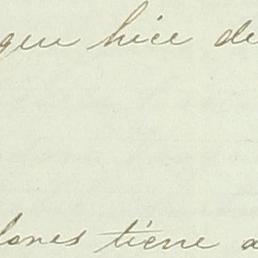 que hice de
lones tiene a